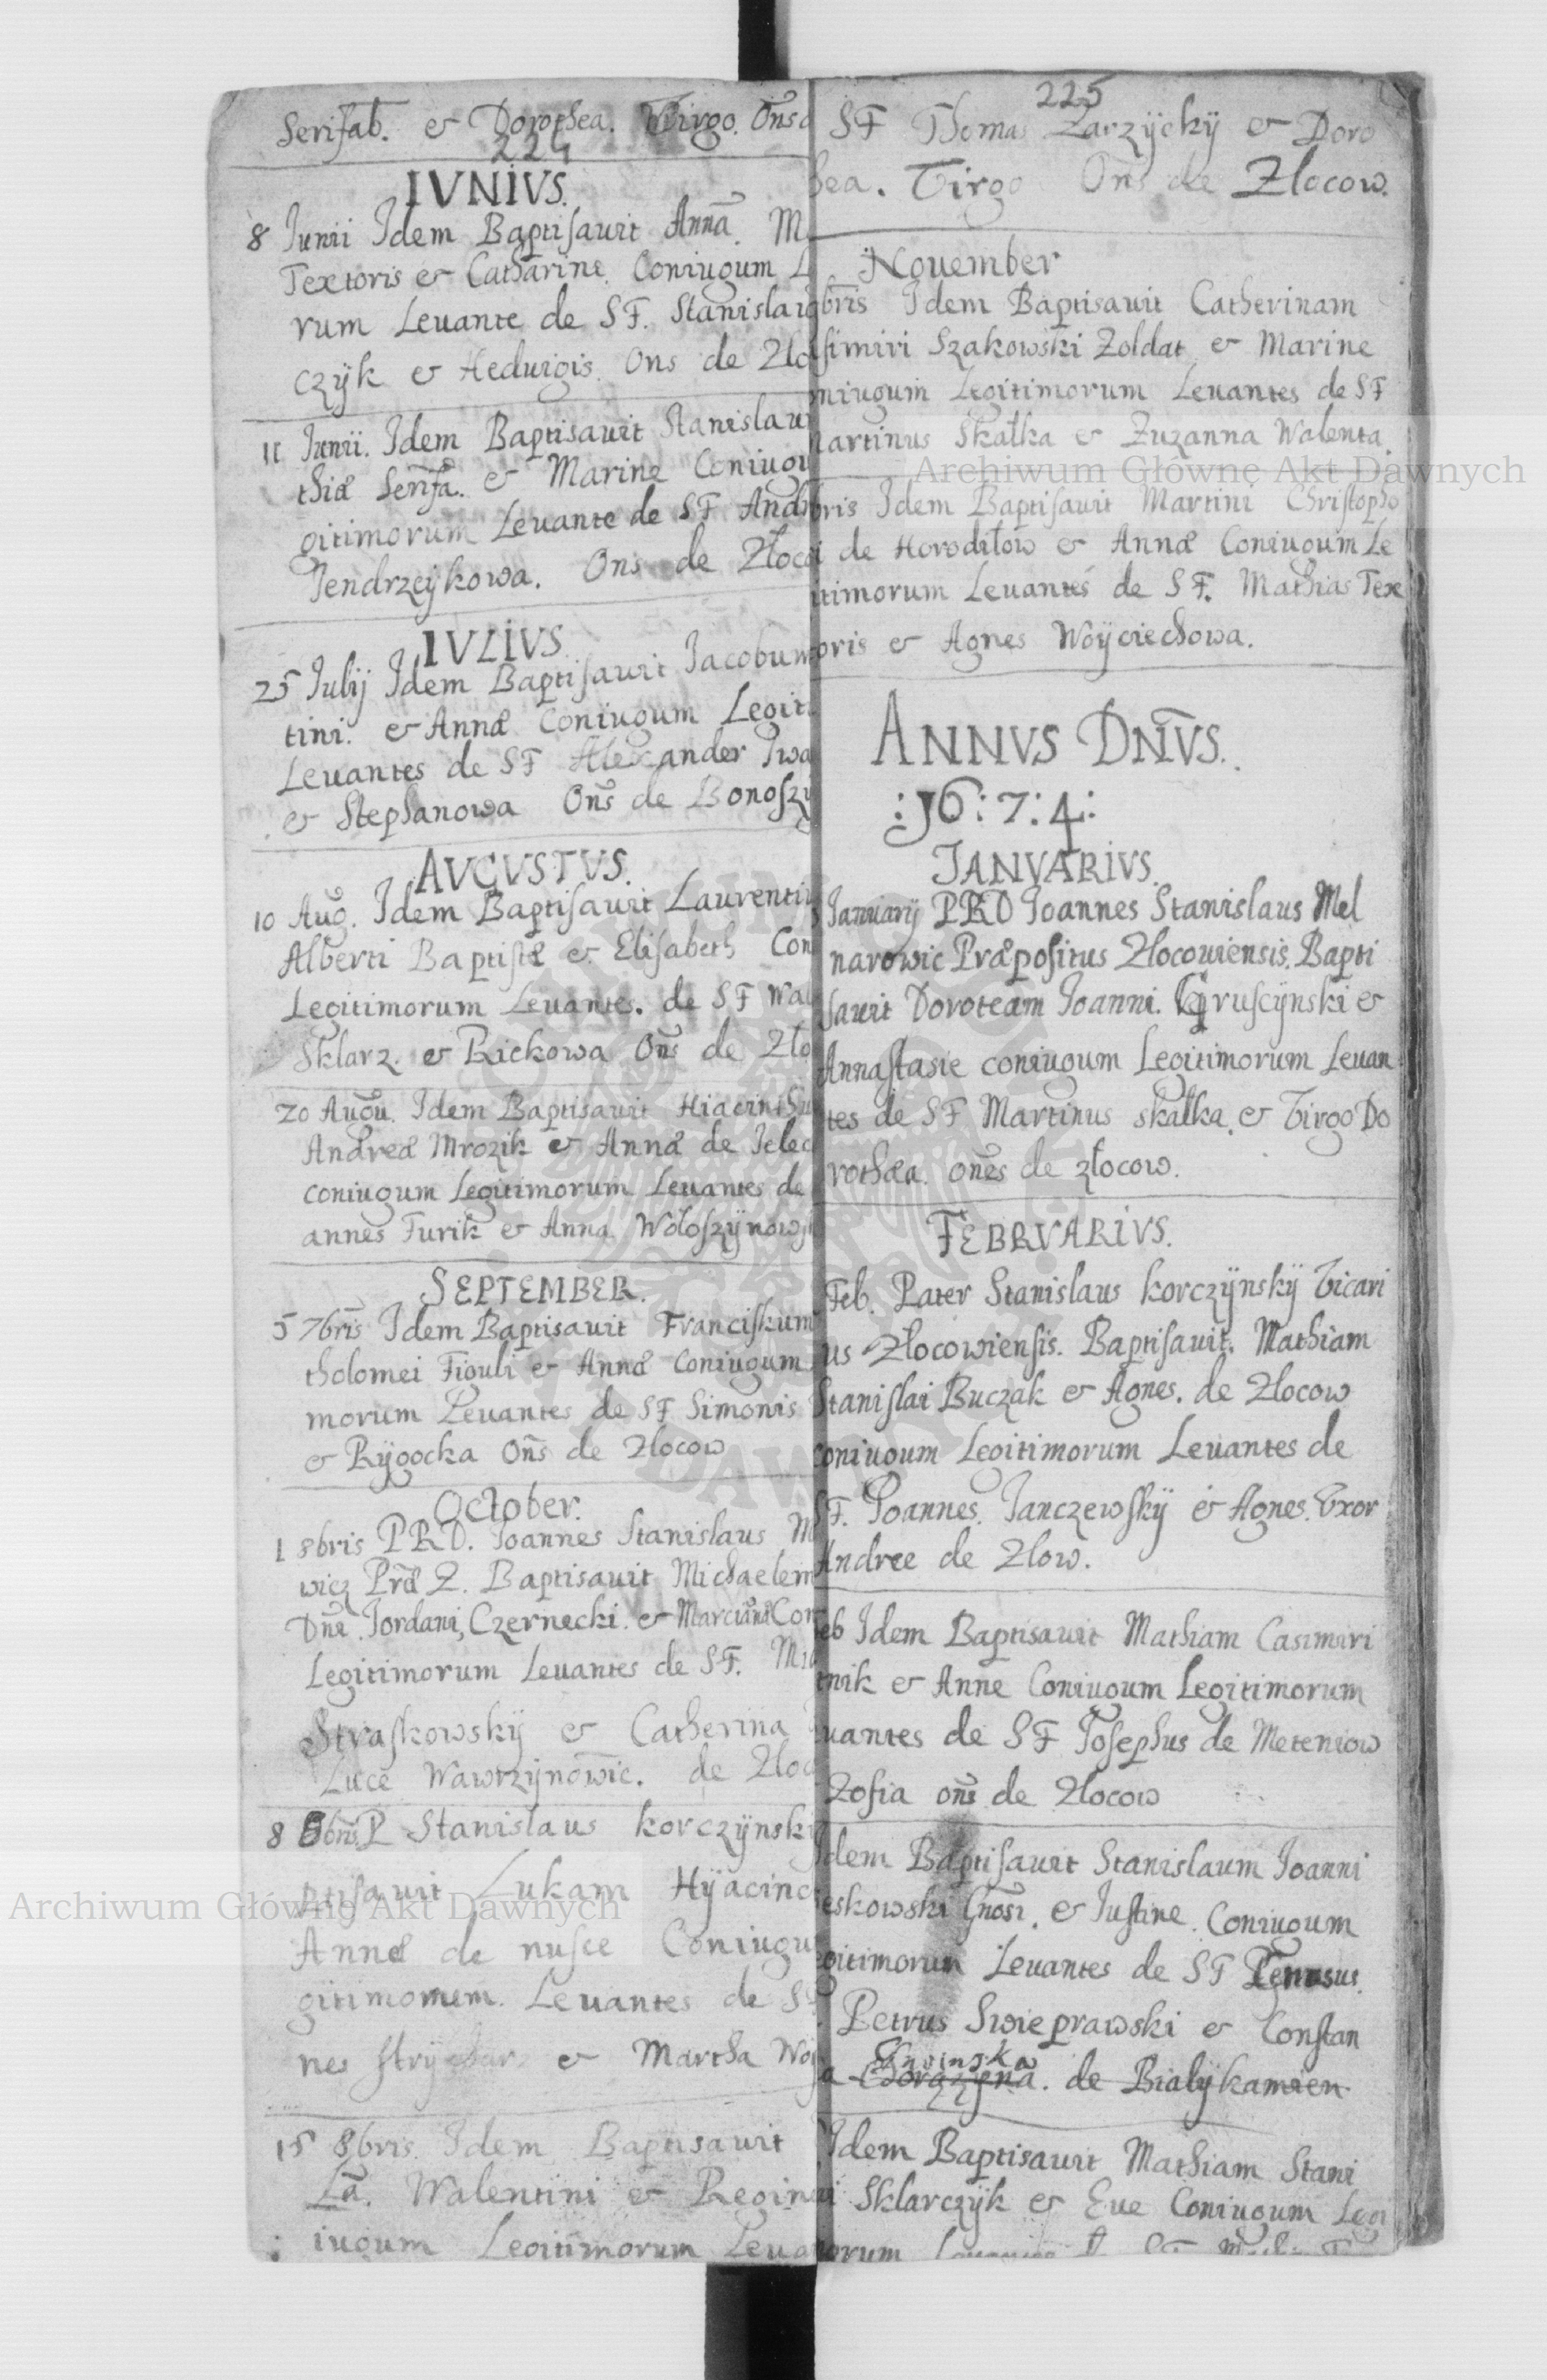 224
Serifab. & Dorothea. Virgo. Oñs d
IVNIVS.
8 Junii Idem Baptisauit Annã. M
Textoris & Catharine. Coniugum L
rum Leuante de SF. Stanislau
czÿk & Heduigis. Ons de Zlo
11 Junii. Idem Baptisauit Stanislau
thiæ Serifa. & Marine Coniugu
gitimorum Leuante de SF Andr
Jendrzeÿkowa. Ons de Złoco
IVLIVS.
25 Julij Idem Baptisauit Jacobum
tini. & Annæ Coniugum Legit
Leuantes de SF Alexander Iwa
& Stephanowa Oñs de Bonoszÿ
AVGVSTVS.
10 Aug. Idem Baptisauit Laurentiu
Alberti Baptistæ & Elisabeth Con
Legitimorum Leuantes. de SF Wal
Sklarz. & Rickowa Oñs de Zło
20 Augu. Idem Baptisauit Hiacinthu
Andreæ Mrozik & Annæ de Jelec
coniugum Legitimorum Leuantes de
annes Furik & Anna Wołoszÿnows
SEPTEMBER.
5 7bris Idem Baptisauit Franciskum
tholomei Figuli & Annæ coniugum
morum Leuantes de SF Simonis
& Rÿgocka Oñs de Zlocow
October.
1 8bris PRD. Joannes Stanislaus M
wicz Præ Z. Baptisauit Michaelem
Dñi Jordani, Czernecki. & Marcianæ Con
Legitimorum Leuantes de SF. Mi
Straskowskÿ & Catherina
Lucę Wawrzÿnowic. de Zloc
8 8bris. P Stanislaus korczÿnski
ptisauit Lukam Hÿacinc
Annæ de nusce Coniugu
gitimomem. Leuantes de S
nes & Martha Woÿ
15 8bris. Idem Baptisauit
Lã. Walentini & Regin
iugum Legitimorum Leua
225
SF Thomas Zarzÿckÿ & Doro
hea. Virgo Oñs de Zlocow.
November
bris Idem Baptisauit Catherinam
simiri Szakowski Zoldat & Marine
niugum Legitimorum Leuantes de SF
artinus Skałka & Zuzanna Walenta.
bris Idem Baptisauit Martini Christopho
i de Horodiłow & Annæ Coniugum Le
itimorum Leuantes de SF. Mathias Tex
oris & Agnes Woÿciechowa.
ANNVS DÑVS.
:16:7:4:
JANVARIVS.
Januarij PRD Joannes Stanislaus Mel
narowic Præpositus Zlocouiensis. Bapti
sauit Doroteam Joanni. Gruscÿnski &
Annastasie coniugum Legitimorum Leuan
tes de SF Martinus skałka. & Virgo Do
rothæa. oñes de złocow.
FEBRVARIVS.
Feb. Pater Stanislaus korczÿnskÿ Vicari
us Złocowiensis. Baptisauit. Mathiam
Stanislai Buczak & Agnes. de Zlocow
coniugum Legitimorum Leuantes de
SF. Joannes. Janczewskÿ & Agnes. Vxor
Andree de Zlow.
eb Idem Baptisauit Mathiam Casimiri
tnik & Anne Coniugum Legitimorum
uantes de SF Josephus de Meteniow
Zofia oñs de Zlocow
Idem Baptisauit Stanislaum Joanni
eskowski Gñosi. & Justine. Coniugum
gitimorum Leuantes de SF
Petrus Swieprawski & Constan
Gnoinska
a Chorazÿna. de Białÿkamien
Idem Baptisauit Mathiam Stani
i Sklarczÿk & Eue Coniugum Legi
orum
Archiwum Główne Akt Dawnych
Archiwum Główne Akt Dawnych